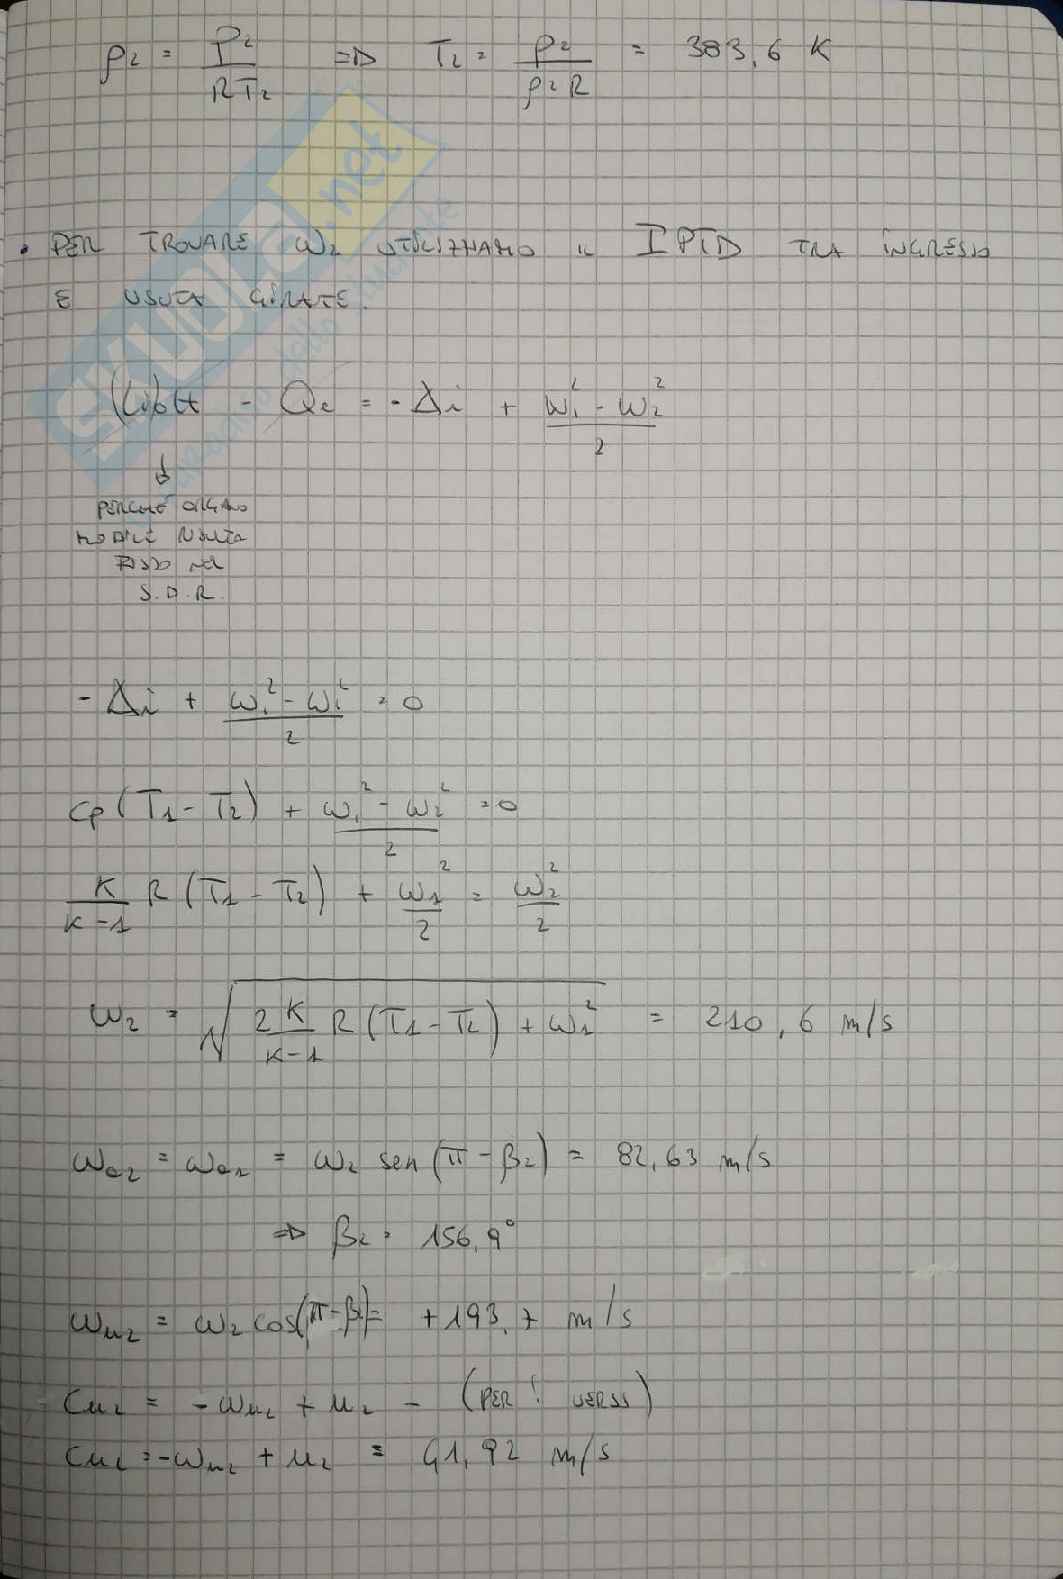 ρ2 = P2 / RT2 => T2 = P2 / ρ2 R = 383,6 K
• PER TROVARE W2 UTILIZZIAMO IL IPTD TRA INGRESSO
E USCITA GIRANTE.
SKUOLA.net
(Li)ott - Qe = -Δi + (w1² - w2²) / 2
↓
PERCHÉ ORGANO
MOBILE RISULTA
FISSO NEL
S.D.R.
-Δi + (w1² - w2²) / 2 = 0
cp (T1 - T2) + (w1² - w2²) / 2 = 0
K / (K-1) R (T1 - T2) + w1² / 2 = w2² / 2
w2 = √( 2 K / (K-1) R (T1 - T2) + w1² ) = 210,6 m/s
wa2 = wa1 = w2 sen (π - β2) = 82,63 m/s
=> β2 = 156,9°
wu2 = w2 cos(π - β2) = +193,7 m/s
cu2 = -wu2 + u2 - (PER ! VERSO)
cu2 = -wu2 + u2 = 41,92 m/s